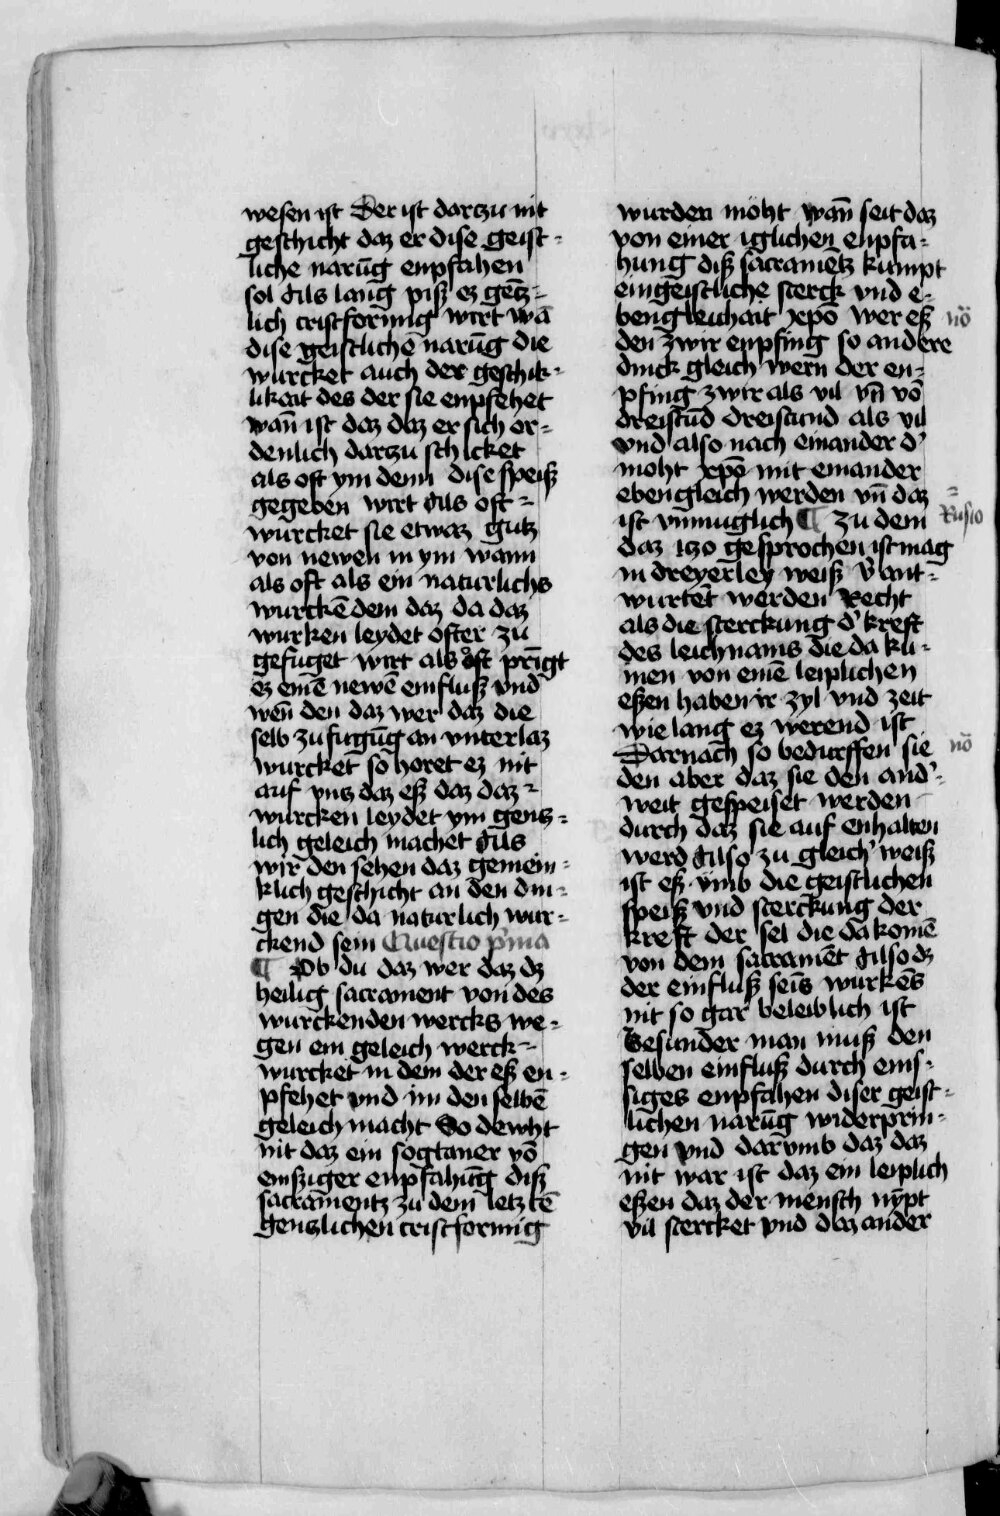 wesen ist Der ist darczu nit
geschicht daz er dise geist=
liche narūg enpfahen
sol Als lang piß ez gēcz=
lich cristformig wirt Wā
dise geistlichē narūg die
wurcket auch der geschik=
likait des der sie enpfehet
wañ ist daz daz er sich or=
denlich darczu schicket
als oft ym denn dise speiß
gegeben wirt Als oft=
wurcket sie etwaz gutz
von newen in ym wann
als oft als ein naturlichs
wurckē dem daz da daz
wurken leydet ofter zu
gefuget wirt als oft prīgt
ez einē newē einfluß vnd
weñ den daz wer daz die
selb zufugūg an vnterlaz
wurcket so horet ez nit
auf vntz daz eß daz daz=
wurcken leydet ym gentz=
lich geleich machet Als
wir den sehen daz gemein=
klich geschicht an den din=
gen die da naturlich wur=
ckend sein Questio p'ma
¶ Ob du daz wer daz dz
heilig sacrament von des
wurckenden wercks we=
gen ein geleich werck=
wurcket in dem der eß en=
pfehet vnd im den selbē
geleich macht So dewht
nit daz ein sogtaner vō
emsziger enpfahūg diß
sacramentz zu dem letztē
gentzlichen cristformig
wurden moht wañ seit daz
von einer iglichen enpfa=
hung diß sacramētz kumpt
ein geistliche sterck vnd e=
bengleichait xpō wer eß
den zwir enpfing so andere
dinck gleich wern der en=
pfing zwir als vil vñ vō
dreistūd dreistund als vil
vnd also nach einander d'
moht xpō mit einander
ebengleich werden vñ daz=
ist vnmuglich ¶ Zu dem
daz iczo gesprochen ist mag
in dreyerley weiß v'ant=
wurtet werden Recht
als die sterckung d' kreft
des leichnams die da ku=
men von einē leiplichen
eßen haben ir zyl vnd zeit
wie lang ez werend ist
Darnach so bedurffen sie
den aber daz sie den and'=
weit gespeiset werden
durch daz sie auf enhalten
werd Also zu gleich' weiß
ist eß vmb die geistlichen
speiß vnd sterckung der
kreft der sel die da komē
von dem sacramēt Also dz
der einfluß seīs wurkēs
nit so gar beleiblich ist
Besunder man muß den
selben einfluß durch ems=
siges enpfahen diser geist=
lichen narūg widerprin=
gen vnd darvmb daz daz
nit war ist daz ein leiplich
eßen daz der mensch nȳpt
vil stercket vnd daz ander
nō
nō